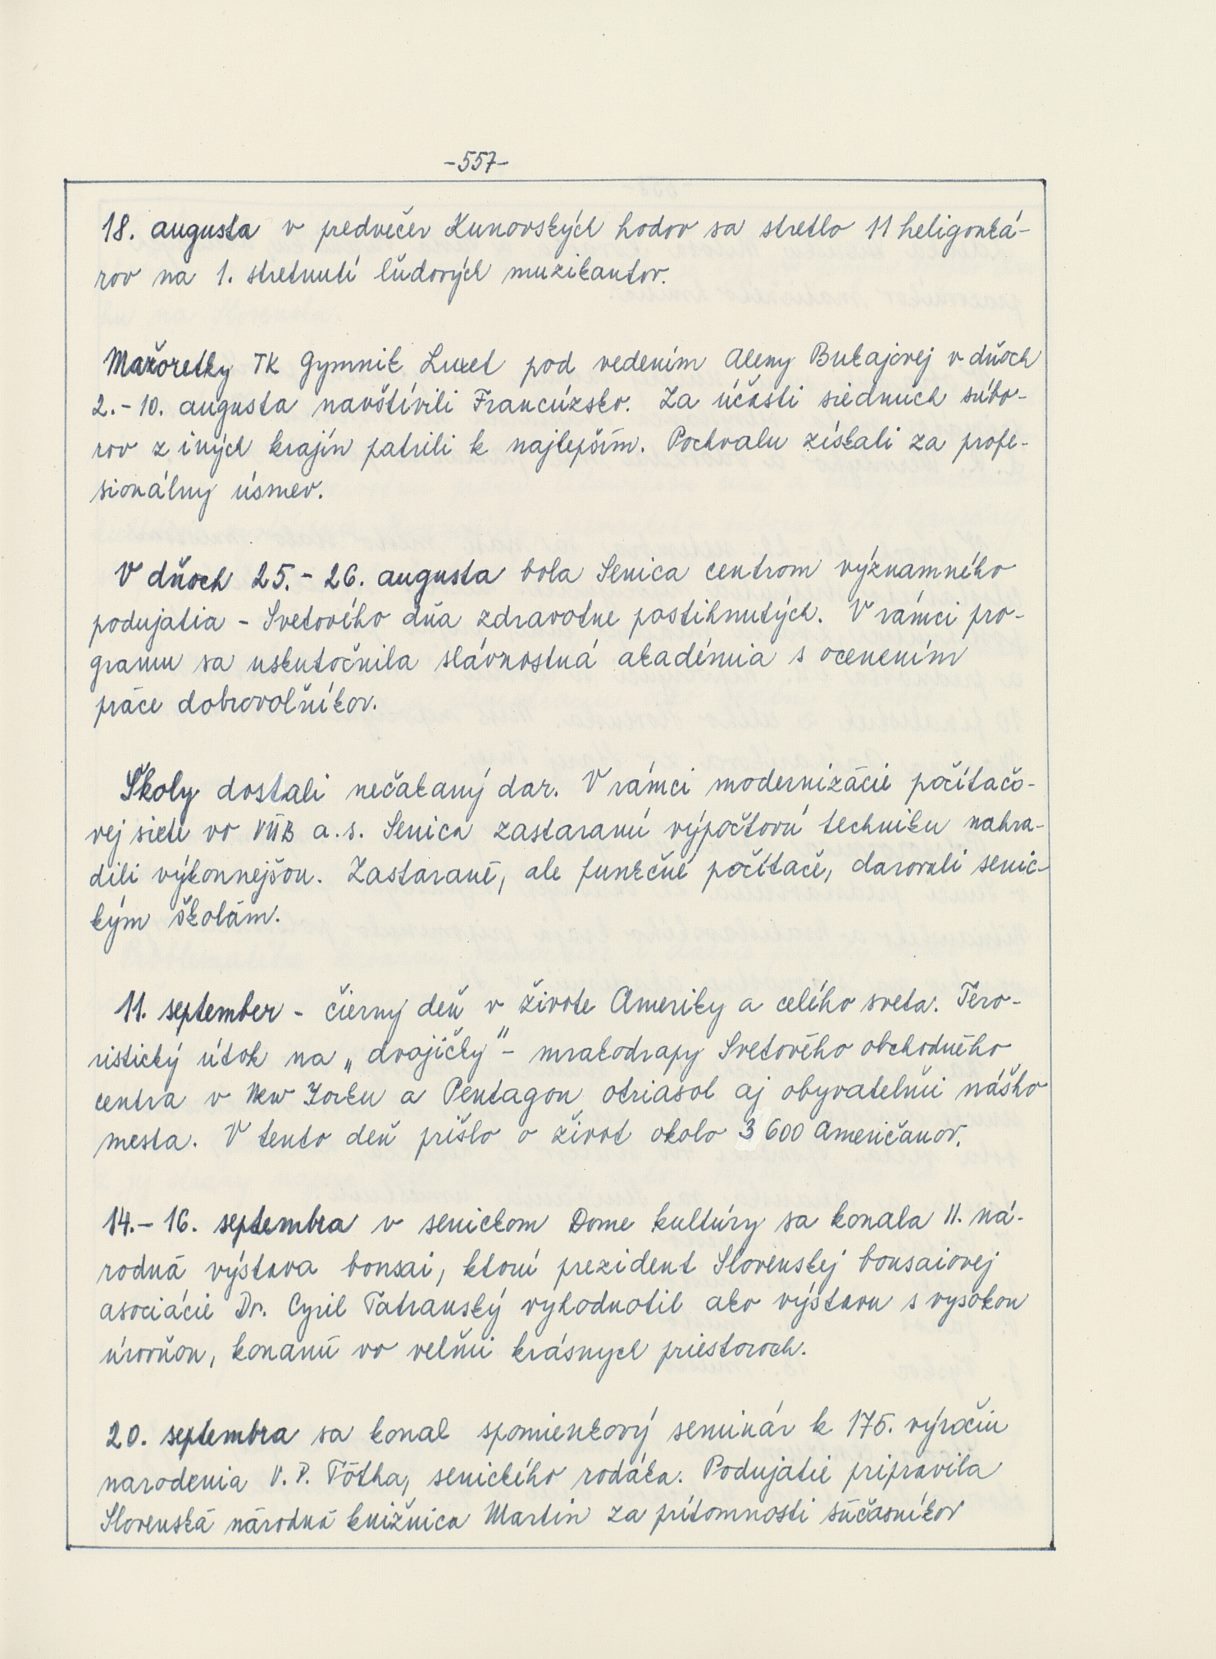 -557-
18. augusta v predvečer Kunovských hodov sa stretlo 11 heligonká-
rov na 1. stretnutí ľudových muzikantov.
Mažoretky TK Gymnik Luxet pod vedením Aleny Bukajovej v dňoch
2.-10. augusta navštívili Francúzsko. Za účasti siedmich súbo-
rov z iných krajín patrili k najlepším. Pochvalu získali za profe-
sionálny úsmev.
V dňoch 25.- 26. augusta bola Senica centrom významného
podujatia - Svetového dňa zdravotne postihnutých. V rámci pro-
gramu sa uskutočnila slávnostná akadémia s ocenením
práce dobrovoľníkov.
Školy dostali nečakaný dar. V rámci modernizácie počítačo-
vej siete vo VÚB a.s. Senica zastaranú výpočtovú techniku nahra-
dili výkonnejšou. Zastarané, ale funkčné počítače, darovali senic-
kým školám.
11. september - čierny deň v živote Ameriky a celého sveta. Tero-
ristický útok na „dvojičky" - mrakodrapy Svetového obchodného
centra v New Yorku a Pentagon otriasol aj obyvateľmi nášho
mesta. V tento deň prišlo o život okolo 3 600 Američanov.
14.- 16. septembra v senickom Dome kultúry sa konala II. ná-
rodná výstava bonsai, ktorú prezident Slovenskej bonsaiovej
asociácie Dr. Cyril Tatranský vyhodnotil ako výstavu s vysokou
úrovňou, konanú vo veľmi krásnych priestoroch.
20. septembra sa konal spomienkový seminár k 175. výročiu
narodenia V. P. Tótha, senického rodáka. Podujatie pripravila
Slovenská národná knižnica Martin za prítomnosti súčasníkov